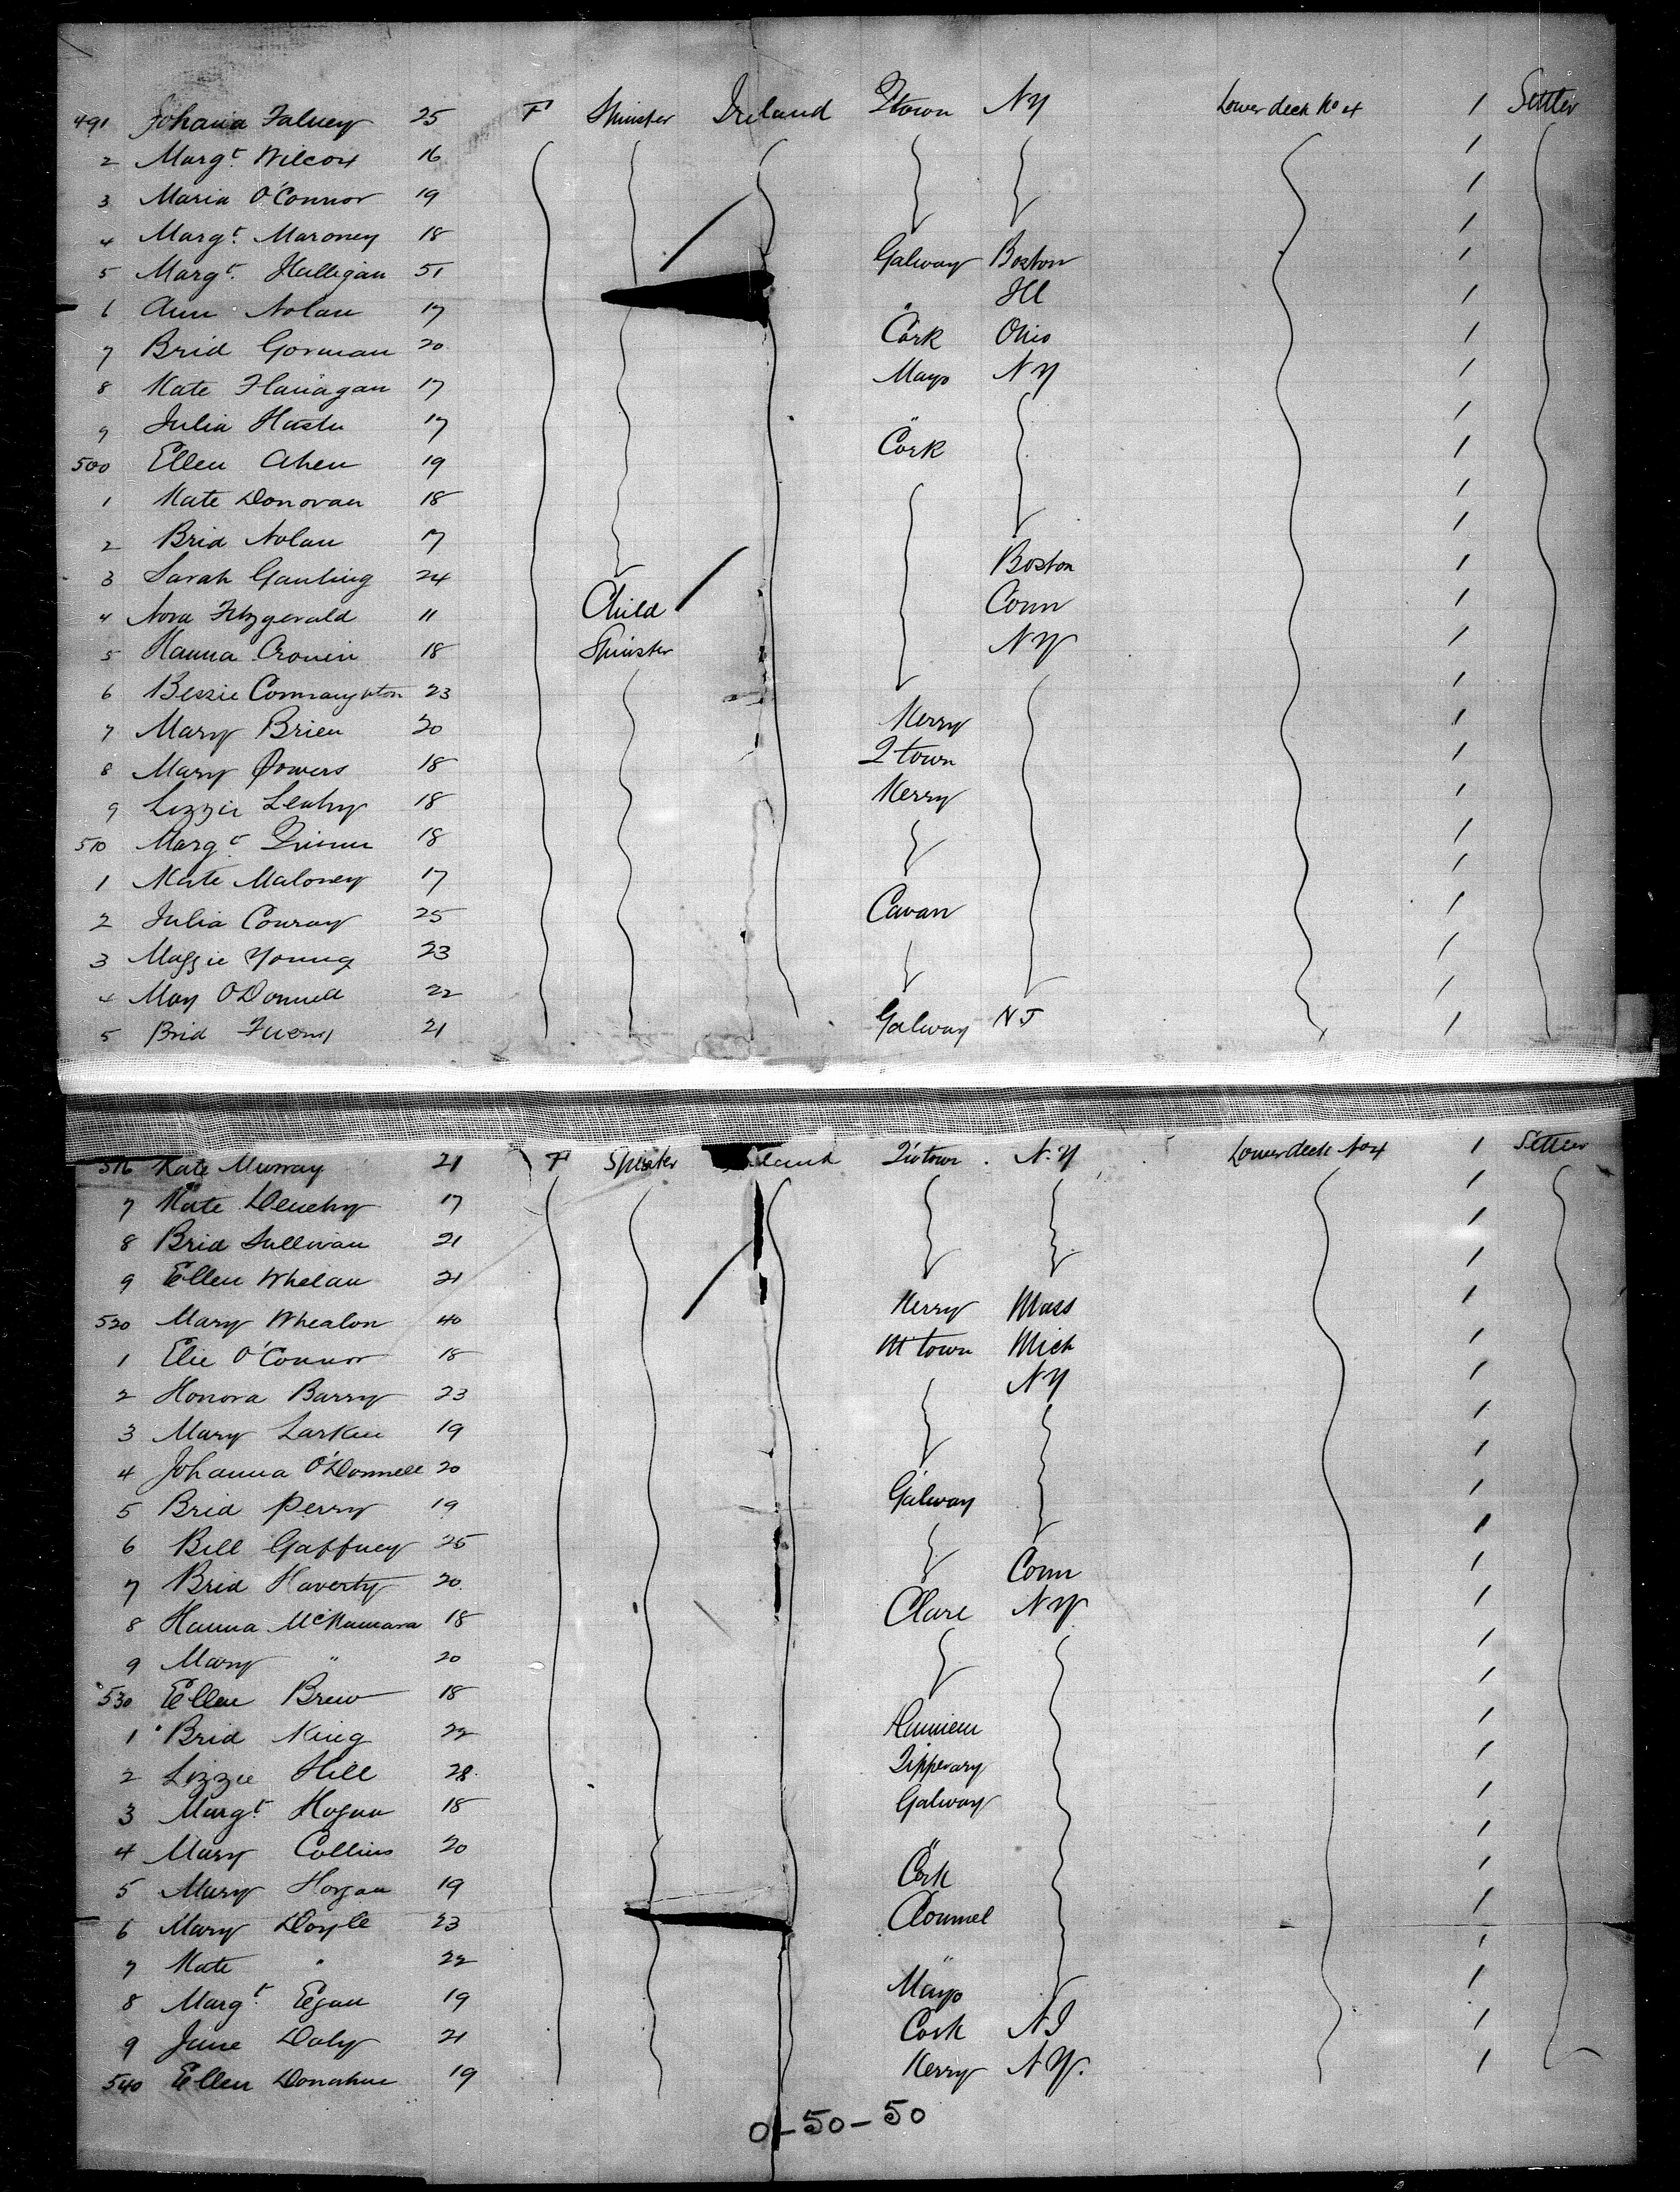 491 Johana Falvey 25 F Spinster Ireland Qtown NY Lower deck No 4 1 Settler
2 Margt Wilcox 16 1
3 Maria O'Connor 19 1
4 Margt Maroney 18 1
5 Margt Halligan 51 Galway Boston 1
6 Ann Nolan 17 " Ill 1
7 Brid Gorman 20 Cork Ohio 1
8 Kate Flanagan 17 Mayo NY 1
9 Julia 17 " 1
500 Ellen Ahen 19 Cork 1
1 Kate Donovan 18 1
2 Brid Nolan 17 1
3 Sarah Gauling 24 Boston 1
4 Nora Fitzgerald 11 Child Conn 1
5 Hanna Cronin 18 Spinster NY 1
6 Bessie Connaughton 23 1
7 Mary Brien 20 Kerry 1
8 Mary Powers 18 Qtown 1
9 Lizzie Leahy 18 Kerry 1
510 Margt Quinn 18 1
1 Kate Maloney 17 1
2 Julia Conroy 25 Cavan 1
3 Maggie Young 23 1
4 May O'Donnell 22 1
5 Brid 21 Galway NJ 1
516 Kate Murray 21 F Spinster Ireland Q'town N.Y Lower deck No 4 1 Settler
7 Kate Denehy 17 1
8 Brid Sullivan 21 1
9 Ellen Whelan 21 1
520 Mary Whealon 40 Kerry Mass 1
1 Elie O'Connor 18 M town Mich 1
2 Honora Barry 23 NY 1
3 Mary Larkin 19 1
4 Johanna O'Donnell 20 1
5 Brid Perry 19 Galway 1
6 Bell Gaffney 25 1
7 Brid Haverty 20 Conn 1
8 Hanna McNamara 18 Clare NY 1
9 Mary " 20 1
530 Ellen Brew 18 1
1 Brid King 22 1
2 Lizzie Hill 28 Tipperary 1
3 Margt Hogan 18 Galway 1
4 Mary Collins 20 " 1
5 Mary Horgan 19 Cork 1
6 Mary Doyle 23 Clonmel 1
7 Kate " 22 " 1
8 Margt Egan 19 Mayo 1
9 Jane Daly 21 Cork NJ 1
540 Ellen Donahue 19 Kerry NY. 1
0-50-50